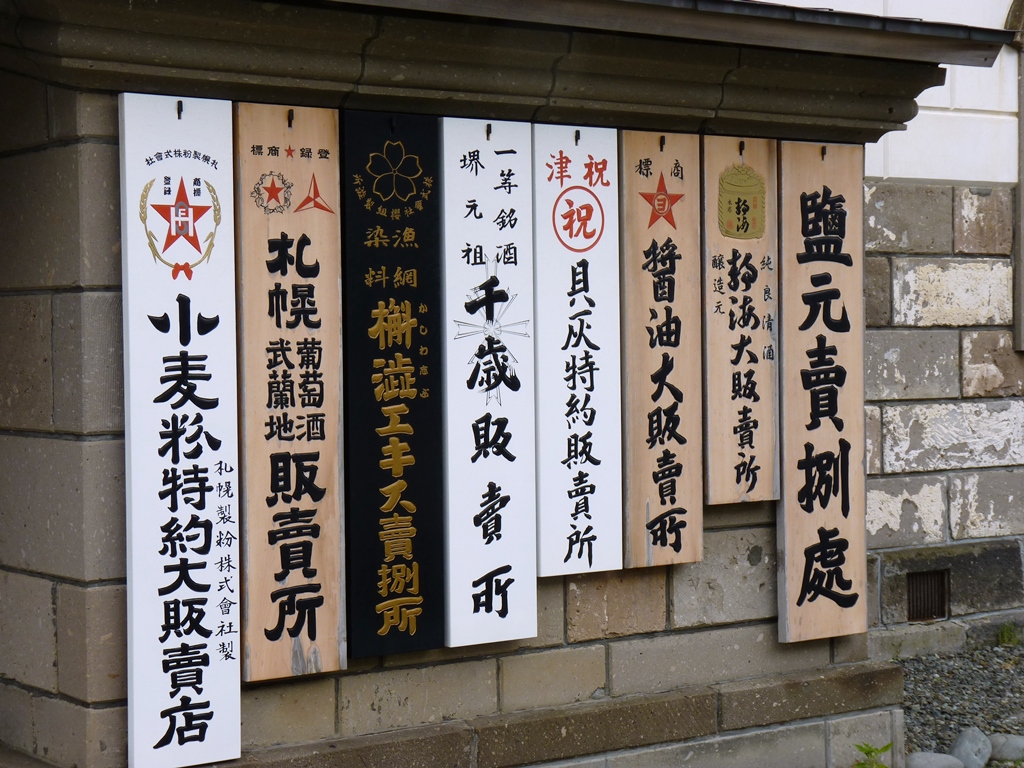 鹽元賣捌處
純良清酒
静海大販賣所
醸造元
商標
醤油大販賣所
祝津
祝
貝灰特約販賣所
一等銘酒
堺元祖
千歳販賣所
漁網
染料
かしわしぶ
槲澁エキス賣捌所
登録商標
札幌葡萄酒武蘭地販賣所
札幌製粉株式會社
商標
登録
小麦粉特約大販賣店
札幌製粉株式會社製